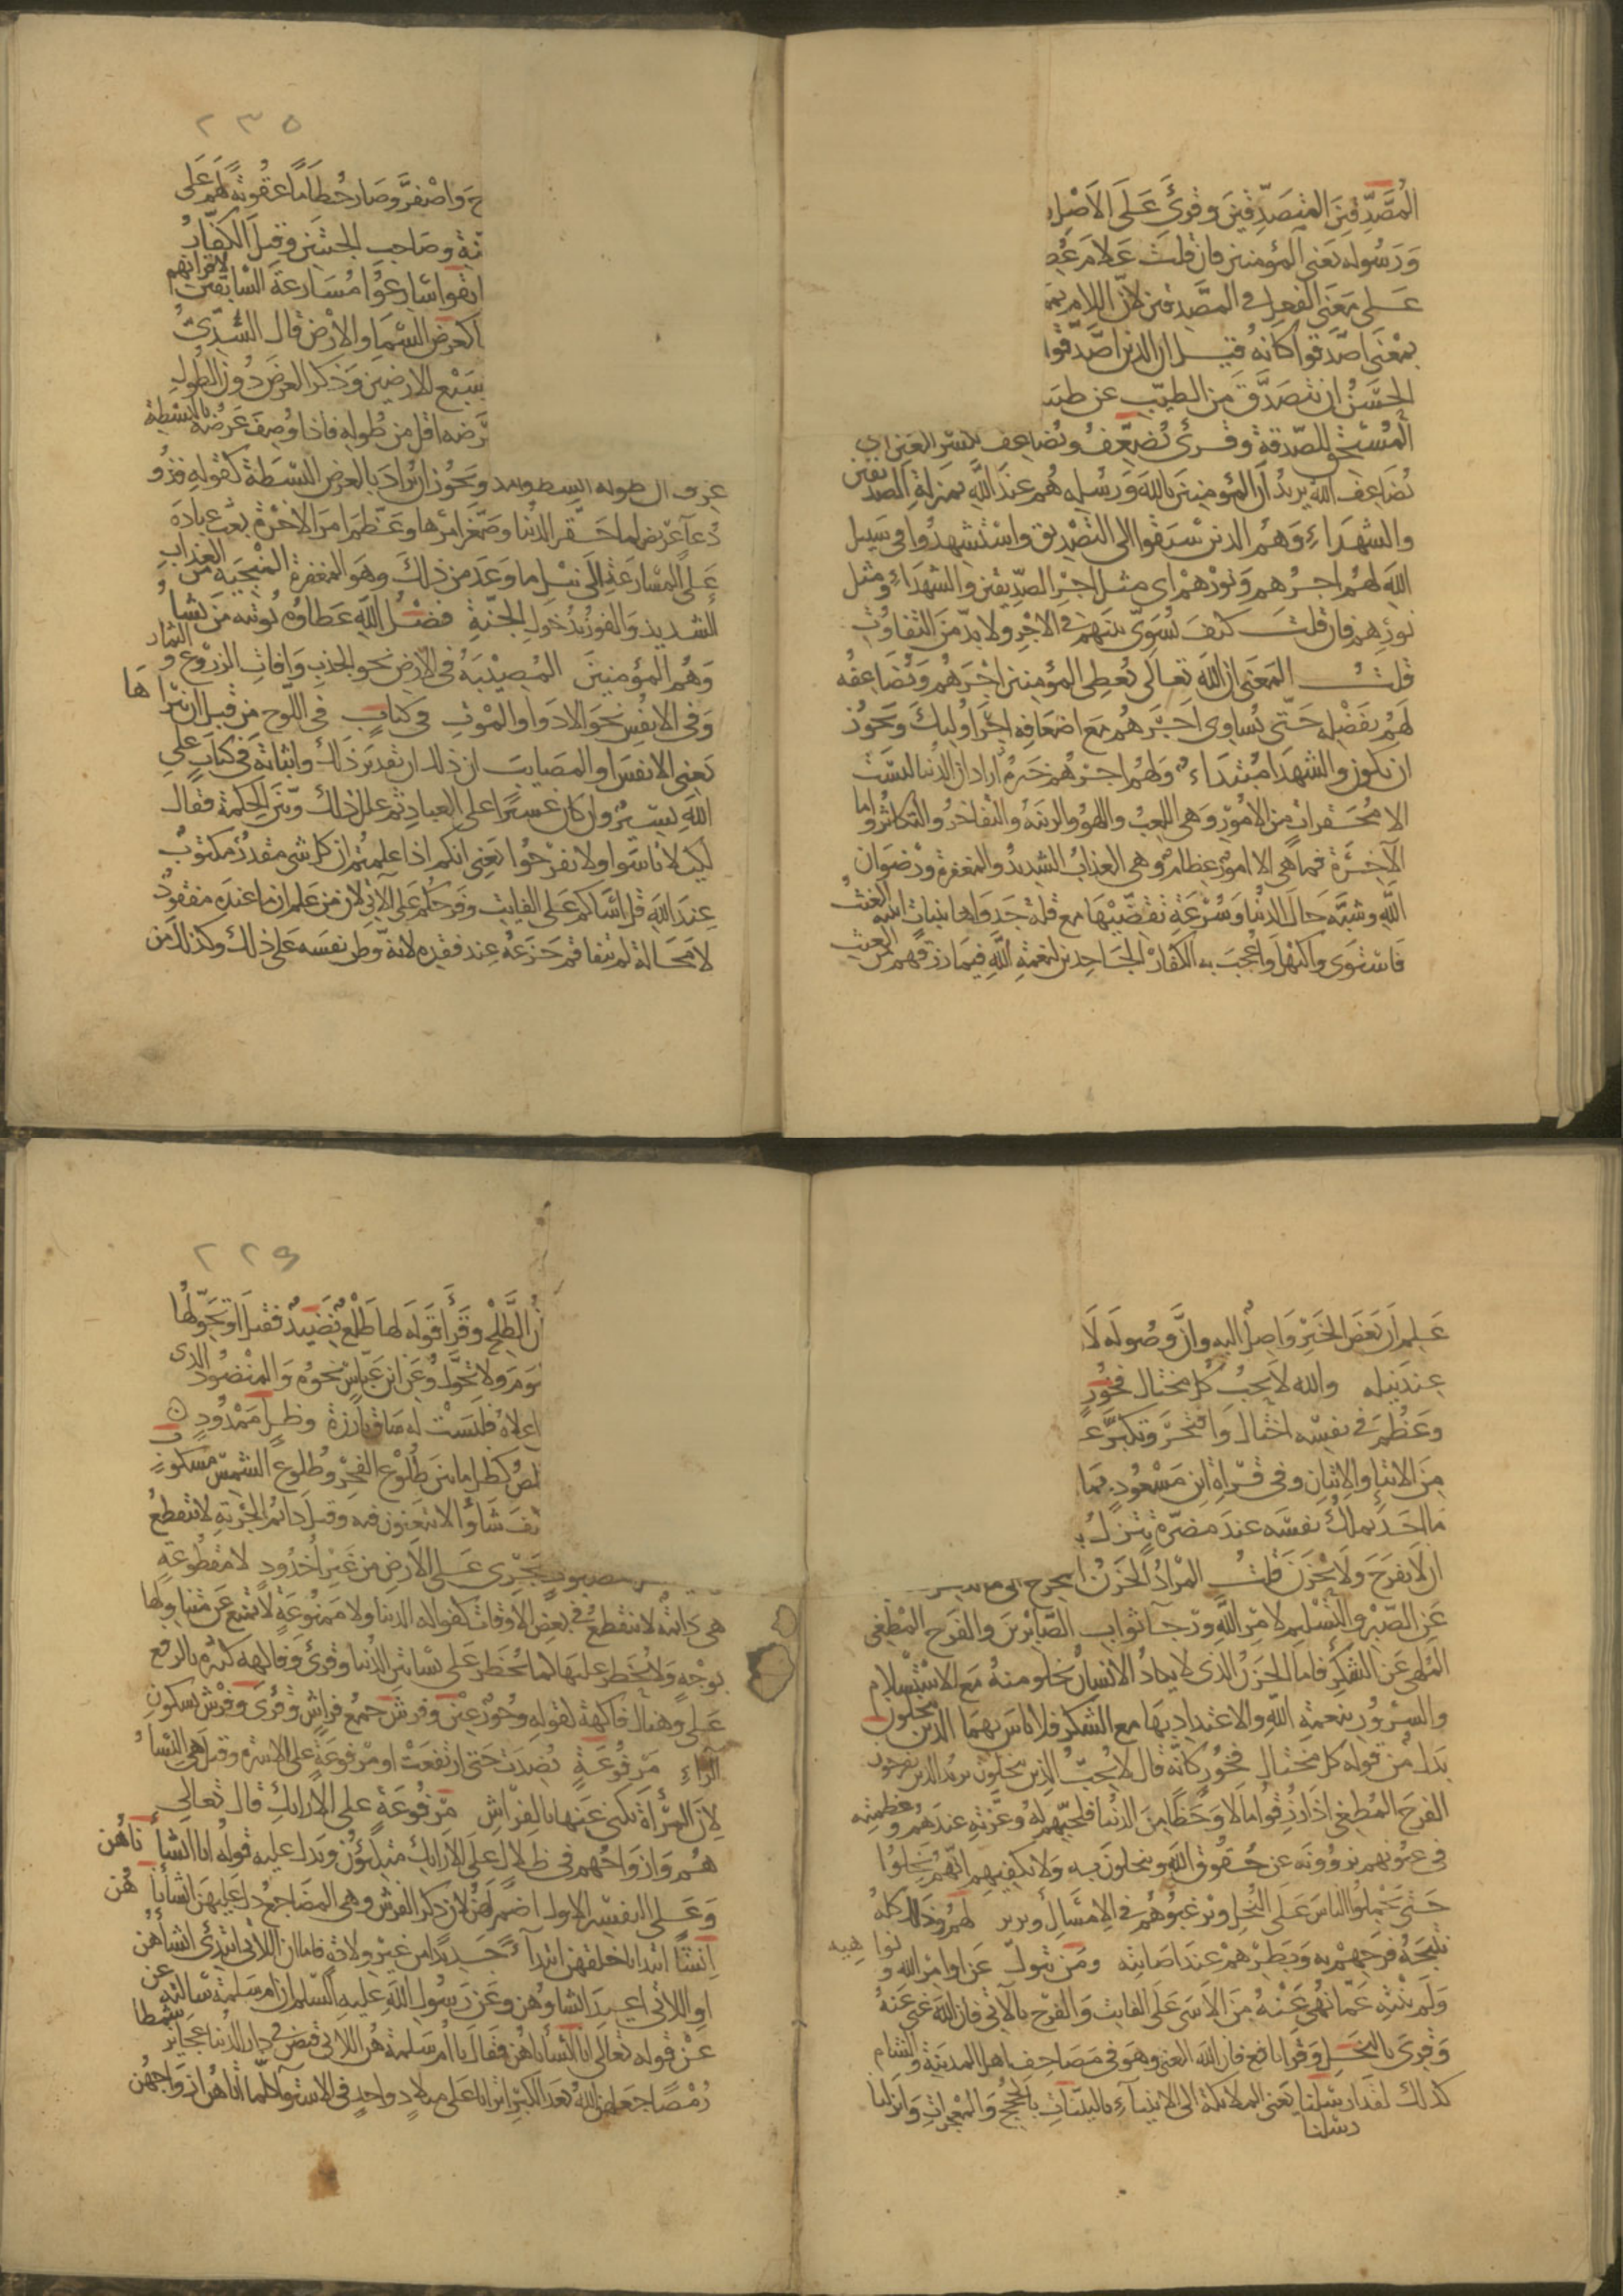 المُصَّدِّقِينَ المتَصَدِّقينَ وقرئَ عَلَى الأَصْلِ
وَرَسُوله يَعنى المؤمنين فان قلت عَلامَ عُطِ
عَلى مَعْنَى الفعل فى المصَّدقين لان اللام بمَ
بمْعنى اصَّدقوا كانه قيل ان الذين اصَّدقوا
الحَسَنُ ان تتصَدَّق مِنَ الطيِّبِ عن طيب
المُسْتحِق للصّدقة وقرئ يُضَعَّفُ ويُضاعِف بكسر العَين اى
يُضَاعِف الله يريدُ أنّ المؤمنِينَ بالله وَرُسُلِه هُم عندَ اللَّهِ بمنزلةِ الصِّديقين
والشهَدَاءِ وَهُم الذين سَبَقُوا الى التصْدِيق واسْتُشْهِدُوا فى سَبِيل
اللهِ لهُم اجرُهم وَنورُهمْ اى مثل اجْرِ الصِّدِّيقين والشهَدَاءِ ومثل
نورِهم فان قلتَ كيفَ يُسَوِّى بينهمْ فى الاجْرِ ولا بدَّ مِنَ التفاوُتِ
قلتُ المَعنى ان اللهَ تعالى يُعطِى المؤمنين اجْرَهُم وَيُضَاعِفُه
لَهُم بفَضْلِه حَتّى يُساوِى اجْرَهُم مَع اضعَافِه اجْرَ اولئِكَ وَيَجُوز
ان يكون والشهدَا مُبْتداءً وَلهُم اجرُهُم خَبرُه أرادَ ان الدُنيا ليسَتْ
الا مُحَقرات مِنَ الامُورِ وَهى اللعِبُ واللهْوُ والزينَةُ والتفاخرُ والتكاثرُ واما
الآخِرَة فما هى الا امورٌ عظامٌ وهى العذابُ الشديدُ والمغفرة ورضوَان
اللهِ وشبَّه حَالَ الدنيا وَسُرْعَةَ تقضِّيْهَا مع قلة جَدْوَاها بنباتٍ انبته الغَيْثُ
فَاسْتوَى واكتهَلَ وَاعْجبَ به الكفارَ الجَاحِدين لنعمَةِ اللَّهِ فيمَا رزقهم مِن الغيث
٢٣٥
ج وَاصْفرَّ وصَارَ حُطاماً عقوبةً لهم عَلى
نةِ وصَاحِبِ الجنتينِ وقيلَ الكفّارُ
ابقوا سَارِعُوا مُسَارعَةَ السَّابقين لاقرانهم
كعَرضِ السَّمَا والارْضِ قال السُّدِّىُّ
بسَبْع الارضِين وَذكر العرض دُون الطُولِ
رضه اقل من طُولِه فاذا وُصِفَ عَرْضُه بالبسْطَةِ
عرف ان طوله ابسط وامد ويجُوز ان يُرادَ بالعرض البَسْطَة كقوله فذو
دُعآءٍ عريضٍ لما حَقَّر الدنيا وصَغَّر امرَها وعَظَّم امرَ الاخِرَة بعَث عبادَه
عَلى المسَارعَةِ الى نيل ما وَعَدَ من ذلكَ وهوَ المغفرة المنجيَة من العذاب
الشديد وَالفوزُ بدُخول الجنّةِ فضْلُ اللَّهِ عَطاؤُه يُوتيه مَن يشا
وَهُم المؤمنِينَ المُصِيْبَة فى الارضِ نحو الجدبِ وَافاتِ الزرُوع والثمار
وَفى الانفُسِ نحوَ الادوَا والمَوْتِ فى كتابٍ فى اللَّوح مِن قبل ان نبرأَها
يَعنى الانفسَ او المصَايبَ ان ذلك ان تقديرَ ذلكَ واثباتَه فى كتابٍ على
اللهِ يَسِيْرٌ وان كان عسيرًا على العبادِ ثم علل ذلك وبيَّن الحِكمة فقال
لكيلا تاسَوا ولا تفرَحُوا يَعنى انكم اذا علِمتُم ان كل شى مقدرٌ مكتوبٌ
عندَ اللهِ قل اسَاكم عَلى الفايتِ وفرَحكم على الآتى لان مَن عَلم ان ما عندَه مفقودٌ
لا محَالة لم يتفاقم جَزَعُه عِند فقدِه لانّه وطن نفسَه عَلى ذلكَ وكذلك مَن
عَلِم اَن بَعْضَ الخيْرِ وَاصِلٌ اليه وانَّ وُصُوله لَا
عِندَ نيله والله لا يحِبُ كُل مختال فخُورٍ
وعَظُمَ فى نفسِه اختالَ وَافتخرَ وتكبَّرَ ع
مِنَ الايتاءِ والاتيان وفى قراةِ ابن مَسْعُودٍ بمَا
ما احَد يملكُ نفسَه عندَ مضرّةٍ تنزلُ ب
ان لا يَفرَح وَلا يحْزن قلتُ المُرادُ الحزنُ المخرج الى ما
عَن الصّبْرِ والتسْليمِ لامْرِ اللَّهِ ورَجآ ثوابِ الصَّابِرينَ والفرَح المُطغى
المُلهِى عَن الشكر فاما الحزَنُ الذى لا يكادُ الانسانُ يخلو منهُ مَع الاسْتِسْلام
والسرُورُ بنعمَةِ اللهِ والاعتدادِ بهَا مع الشكر فلا باسَ بهمَا الذين يبخلون
بَدلٌ من قوله كل مختال فخورٍ كانّه قال لا يُحِبّ الذين يبخلون يريد الذين يفرحون
الفرَح المُطغِى اذا رُزقُوا مَالًا وَحَظًّا مِنَ الدُنيا فلحبّهم لهُ وَعزَّته عندَهُم وعظمته
فى عيُونهم يزوُونَه عن حُقوق الله ويبخلون به وَلا يكفيهم انّهم بَخِلوا
حَتى يَحْمِلوا الناسَ عَلَى البُخْلِ ويُرغبُوهُم فى الامسَالِ ويزين لهُم وذلك كلهُ
نتيجَةُ فرَحِهمْ به وَبَطرِهمْ عندَ اصَابته ومَن يتولَّ عَن اوامْرِ الله ونواهيه
وَلَم يَنْتهِ عَمّا نُهى عَنْهُ مِنَ الاَسَى عَلَى الفايتِ وَالفرَح بالآتى فان اللهَ غنى عنهُ
وَقرِئ بالبَخَلِ وَقرا نافع فان الله الغنى وهو فى مَصَاحِف اهل المدينة والشام
كذلك لقد ارسَلنا يَعنى الملائكة الى الانبياءِ بالبيّناتِ بالحجَج وَالمعجزاتِ وَانزلنا
رسْلنا
٢٢٩
أن الطَّلح وقرَأ قَوله لهَا طَلْعٌ نَضِيدٌ فقيلَ اَوَ تحَوِّلهَا
يَومَ وَلا تحوَّلُ وَعَن ابن عَبّاسٍ نحوُه وَالمنْضُودُ الذى
اعلاهُ فليسَتْ لَه سَاق بارزة وظِلٍّ مَمدُودٍ
لصٌ كظل ما بينَ طُلُوْع الفجْر وطُلوع الشمسِ مَسكوبٍ
يفَ شَاؤُا لا يتعَنّون فيه وَقيل دائم الجرْيةِ لا ينقطعُ
مصبوبٍ يَجْرِى عَلى الاَرضِ من غيْرِ اُخْدُودٍ لا مقْطُوعَةٍ
هى دَائمَةٌ لا تنقطعُ فى بعض الاوْقاتِ كفواكه الدنيا ولا مَمنوعَةٍ لا تمنَع عَن متناولها
بوَجْهٍ وَلا يُحْظرُ عليها كما يُحظر عَلى بسَاتين الدُنيا وقرئ وفاكهَة كثيرة بالرفع
عَلى وهناك فاكهة كقوله وَحُورٌ عينٌ وفرشٍ جمع فراشٍ وقرئ وَفُرْشٍ بسكون
الراءِ مَرْفوعَةٍ نُضِدَت حَتى ارتفعَتْ او مرْفوعَةٍ على الاسِرةِ وقيل هى النسَاءُ
لانَّ المرْأةَ يُكنى عَنها بالفراشِ مرْفوعَةٌ على الارائكِ قال تعالى
هُم وَازوَاجُهم فى ظلالٍ عَلى الارائك متكئون ويدل عليه قولُه انا انشأناهُن
وَعَلى التفسِير الاولِ اضمَر لهُنَّ لان ذكر الفرُش وهى المضَاجعُ دل عليهن انشأناهُن
اِنشَاءً ابتدانا خلقهن ابتدآءً جَديدًا من غير ولادةٍ فاما ان اللاتى ابتدئ انشاؤهُن
او اللاتى اعيدَ انشاوهُن وعَن رَسُولِ الله عَليهِ السَّلم ان امّ سَلمَة سَالته عن
عَن قوله تعالى انا انشأناهُن فقَالَ يا ام سَلمة هُنّ اللاتى قبضن فى دار الدُنيا عَجائز شمطا
رُمْصًا جعَلهن اللهُ بَعدَ الكبَرِ اترابا عَلى ميلادٍ واحدٍ فى الاستواءِ كلّمَا أتاهُن ازوَاجهُن